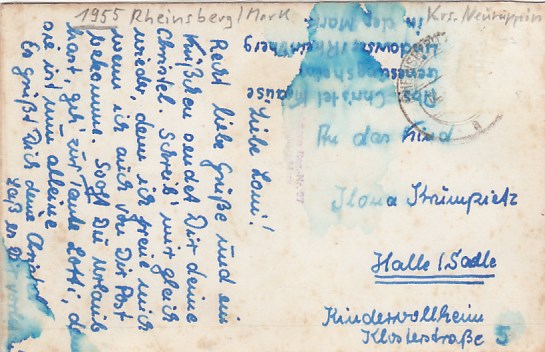 1955 Rheinsberg/Mark
Krs. Neuruppin
Liebe Loni!
Recht liebe Grüße und ein
Küßchen sendet Dir deine
Christel. Schreib' mir gleich
wieder, denn ich freue mich
wenn ich auch von Dir Post
bekomme. Sooft Du Urlaub
hast, geh' zur Tante Lotti, da
sie ist nun alleine.
Es grüßt Dich deine Christel
Laß es Dir
Abs. Christel Krause
Genesungsheim
Lindowsee/Rheinsberg
in der Mark
An das Kind
Ilona Krümpietz
Halle/Saale
Kindervollheim
Klosterstraße 5